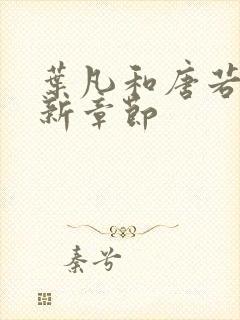 葉凡和唐若
新章節
秦兮